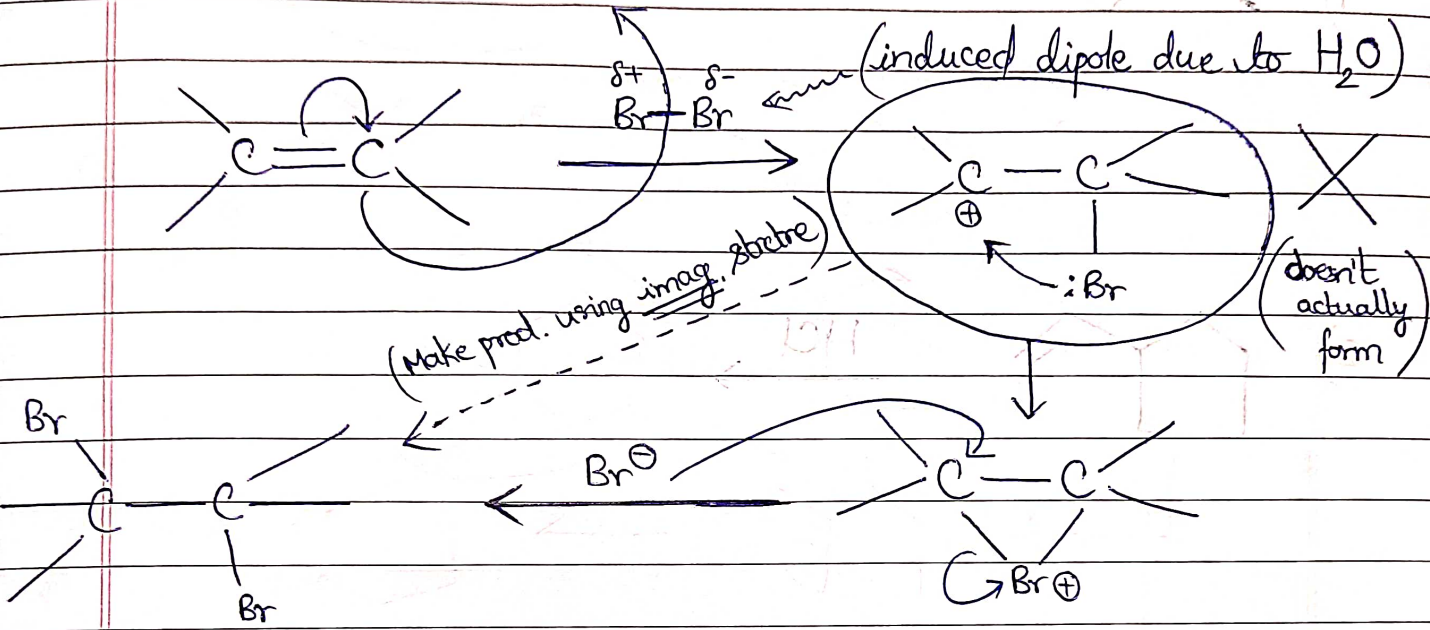 (induced dipole due to H₂O)
δ+ δ-
Br—Br
C=C
C—C
⊕
:Br
(doesn't
actually
form)
(Make prod. using imag. strctre)
Br
Br⊖
C—C
C—C
Br⊕
Br